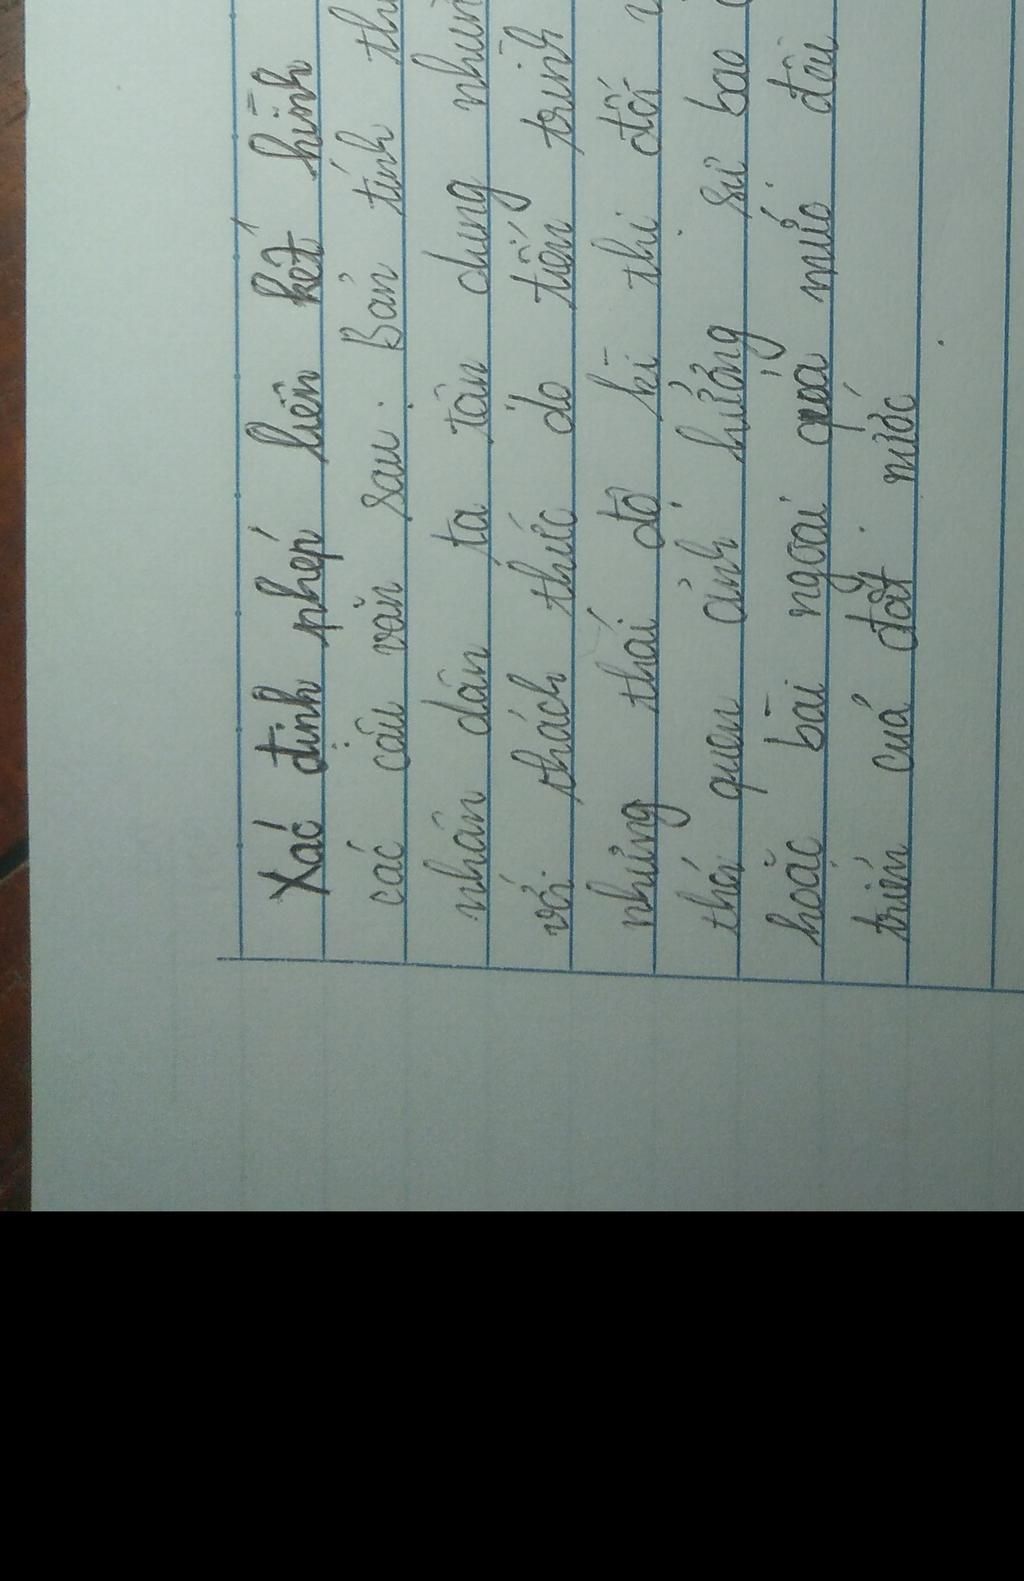 Xác định phép liên kết hình
các câu văn sau. Bản tính
nhân dân ta tận dụng
với thách thức do tiến trình
những thái độ kì thị đối
thói quen ảnh hưởng sự bao
hoặc bài ngoại quá mức đều
triển của đất nước